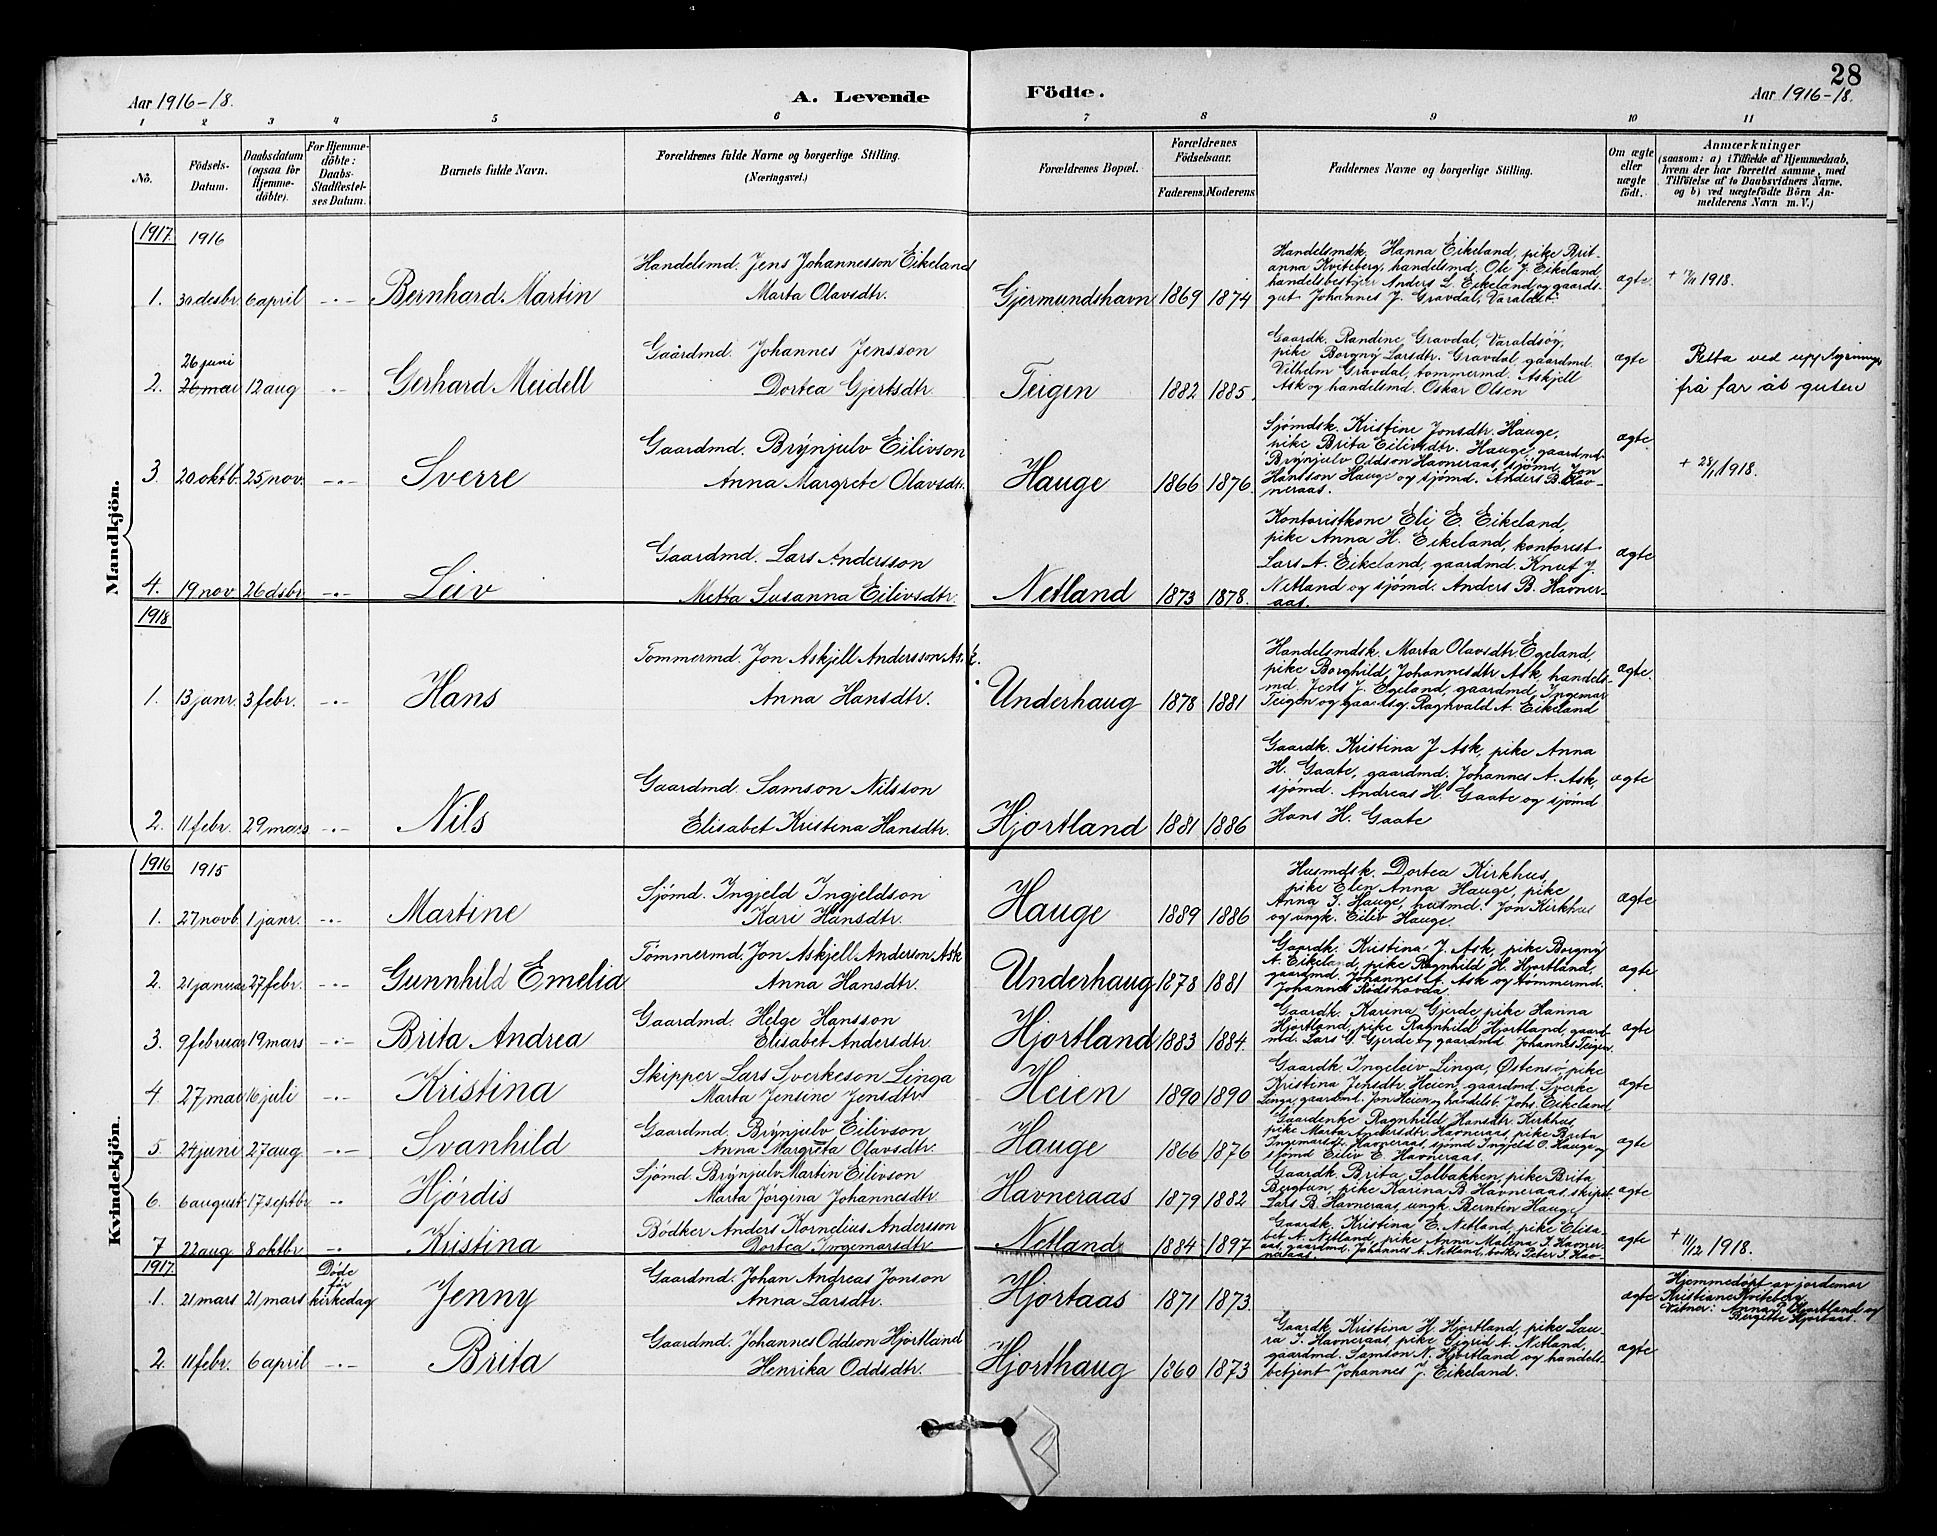 28
Aar 1916-18.
A. Levende
Födte.
Aar 1916-18.
1 2 3 4 5 6 7 8 9 10 11
No.
Födsels-Datum.
Daabsdatum (ogsaa for Hjemme-döbte).
For Hjemme-döbte: Daabs-Stadfæstel-ses Datum.
Barnets fulde Navn.
Forældrenes fulde Navne og borgerlige Stilling. (Næringsvei.)
Forældrenes Bopæl.
Forældrenes Födselsaar.
Faderens. Moderens.
Faddernes Navne og borgerlige Stilling.
Om ægte eller uægte födt.
Anmærkninger
(saasom: a) i Tilfælde af Hjemmedaab,
hvem der har forrettet samme, med
Tilföielse af to Daabsvidners Navne.
og b) ved uægtefödte Börn An-
melderens Navn m. V.)
Mandkjön.
1917. 1916
1. 30 desbr. 6 april -"- Bernhard Martin
Handelsmd. Jens Johannesson Eikeland
Marta Olavsdtr.
Gjermundshavn 1869 1874
Handelsmdk. Hanna Eikeland, pike Brit-
anna Kviteberg, handelsmd. Ole J. Eikeland,
handelsbestyrer Anders L. Eikeland og gaards-
gut Johannes J. Gravdal, Varaldsö.
ægte. + 1918.
2. 26 juni 26 mai 12 aug -"- Gerhard Meidell
Gaardmd. Johannes Jensson
Dortea Gjertsdtr.
Teigen 1882 1885.
Gaardk. Randine Gravdal, Varaldsöy,
pike Borgny Larsdtr. Gravdal, gaardmd.
Vilhelm Gravdal, tømmermd. Askjell
Ask og handelsmd. Oskar Olsen
ægte
Retta ved upplysning
frå far åt guten
3. 20 oktb. 25 nov. -"- Sverre
Gaardmd. Brynjulv Eilivson
Anna Margrete Olavsdtr.
Hauge 1866 1876.
Sjømdsk. Kristine Jonsdtr. Hauge,
pike Brita Eilivsdtr. Hauge, gaardmd.
Brynjulv Oddson Havneraas, sjømd. Jon
Hansson Hauge og sjømd. Anders B. Hav-
neraas.
ægte. + 28/1 1918.
4. 19 nov 26 dsbr. -"- Leiv
Gaardmd. Lars Andersson
Metta Susanna Eilivsdtr.
Netland 1873 1878.
Kontoristkone Eli E. Eikeland,
pike Anna H. Eikeland, kontorist
Lars A. Eikeland, gaardmd. Knut J.
Netland og sjømd. Anders B. Havner-
aas.
ægte
1918
1. 13 janr. 3 febr. -"- Hans
Tømmermd. Jon Askjell Andersson Ask.
Anna Hansdtr.
Underhaug 1878 1881
Handelsmdsk. Marta Olavsdtr. Egeland,
pike Borghild Johannesdtr Ask, handels-
md. Jens J. Egeland, gaardmd. Ingemar
Teigen og gaardsg. Ragnvald A. Eikeland
ægte.
2. 11 febr. 29 mars -"- Nils
Gaardmd. Samson Nilsson
Elisabet Kristina Hansdtr.
Hjortland 1881 1886
Gaardk. Kristina J. Ask, pike Anna
H. Gaate, gaardmd. Johannes A. Ask,
sjømd. Andreas H. Gaate og sjømd
Hans H. Gaate
ægte
Kvindekjön.
1916 1915
1. 27 novb. 1 janr. -"- Martine
Sjömd. Ingjeld Ingjeldson
Kari Hansdtr.
Hauge 1889 1886
Husmdsk. Dortea Kirkhus,
pike Elen Anna Hauge, pike
Anna I. Hauge, husmd. Jon Kirkhus
og ungk. Eiliv Hauge.
ægte
2. 21 januar 27 febr. -"- Gunnhild Emelia
Tømmermd. Jon Askjell Anderson Ask
Anna Hansdtr.
Underhaug 1878 1881
Gaardk. Kristina J. Ask, pike Borgny
A. Eikeland, pike Ragnhild H. Hjortland,
gaardmd. Johannes A. Ask og tømmermd.
Johannes Rödshovda.
ægte
3. 9 februar 19 mars -"- Brita Andrea
Gaardmd. Helge Hansson
Elisabet Andersdtr.
Hjortland 1883 1884.
Gaardk. Karina Gjerde, pike Hanna
Hjortland, pike Ragnhild Hjortland, gaard-
md. Lars G. Gjerde og gaardmd Johannes Teigen.
ægte
4 27 mai 16 juli -"- Kristina
Skipper Lars Sverkeson Linga
Marta Jensine Jensdtr
Heien 1890 1890
Gaardk. Ingeleiv Linga, Østensø, pike
Kristina Jensdtr. Heien, gaardmd. Sverke
Linga, gaardmd. Jon Heien og handelsb. Johs. Eikeland
ægte
5 24 juni 27 aug -"- Svanhild
Gaardmd. Brynjulv Eilivson
Anna Margreta Olavsdtr.
Hauge 1866 1876
Gaardenke Ragnhild Hansdtr. Kirkhus,
pike Marta Andersdtr. Havneraas, pike Brita
Ingemarsdtr. Havneraas, sjömd Ingjeld O. Hauge og
sjömd Eiliv E. Havneraas.
ægte
6. 6 august 17 septbr -"- Hjördis
Sjömd. Brynjulv Martin Eilivson
Marta Jørgina Johannesdtr
Havneraas 1879 1882
Gaardk. Brita Solbakken, pike Brita
Bergtun, pike Karina B. Havneraas, skipst.
Lars B. Havneraas, ungk. Berntin Hauge
ægte
7 22 aug. 8 oktbr -"- Kristina
Bödker Anders Kornelius Andersson
Dortea Ingemarsdtr.
Netland 1884 1897
Gaardk. Kristina E. Netland, pike Elisa-
bet A. Netland, pike Anna Malena I. Havner-
aas, gaardmd. Johannes A. Netland, bødk. Peter I. Hav-
neraas.
ægte + 11/12 1918.
1917.
1. 21 mars 21 mars Døde før kirkedag Jenny
Gaardmd. Johan Andreas Jonson
Anna Larsdtr.
Hjortaas 1871 1873.
ægte
Hjemmedøpt av jordemor
Kristiane Kviteberg
Vitner: Anna P. Hjortland og
Bergitte Hjortaas.
2. 11 febr. 6 april -"- Brita
Gaardmd. Johannes Oddson Hjortland
Henrika Oddsdtr.
Hjorthaug 1860 1873
Gaardk. Kristina H. Hjortland, pike Lau-
ra I. Havneraas, pike Sigrid A. Netland,
gaardmd. Samson N. Hjortland og handels-
betjent Johannes J. Eikeland.
ægte